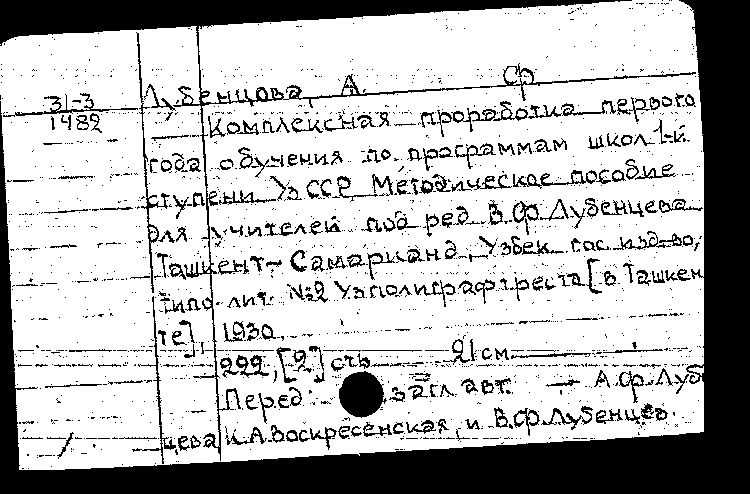 Лубенцова, А. Ф.
31-3
1482
Комплексная проработка первого
года обучения по программам школ 1-й
ступени УзССР. Методическое пособие
для учителей под ред. В.Ф. Лубенцева
Ташкент - Самарканд, Узбек. гос. изд-во,
типо-лит. №2 Узполиграфтреста [в Ташкен
те], 1930.
222, [2] стр. 21 см.
Перед загл. авт. - А.Ф. Лубен
цева, К.А. Воскресенская, и В.Ф. Лубенцев.